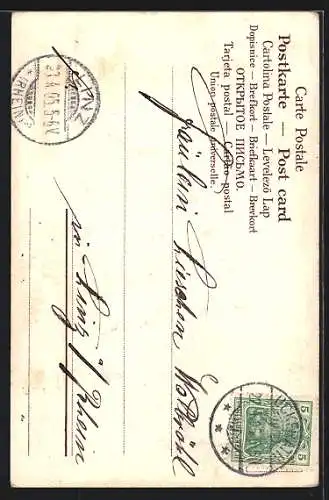 Carte Postale
Postkarte — Post card
Cartolina Postale — Levelező Lap
Dopisnice — Brefkort — Briefkaart — Brevkort
ОТКРЫТОЕ ПИСЬМО.
Tarjeta postal — Cartão postal
Union postale universelle.
Fräulein Lieschen
in Linz a/Rhein
LINZ
(RHEIN)
5
5